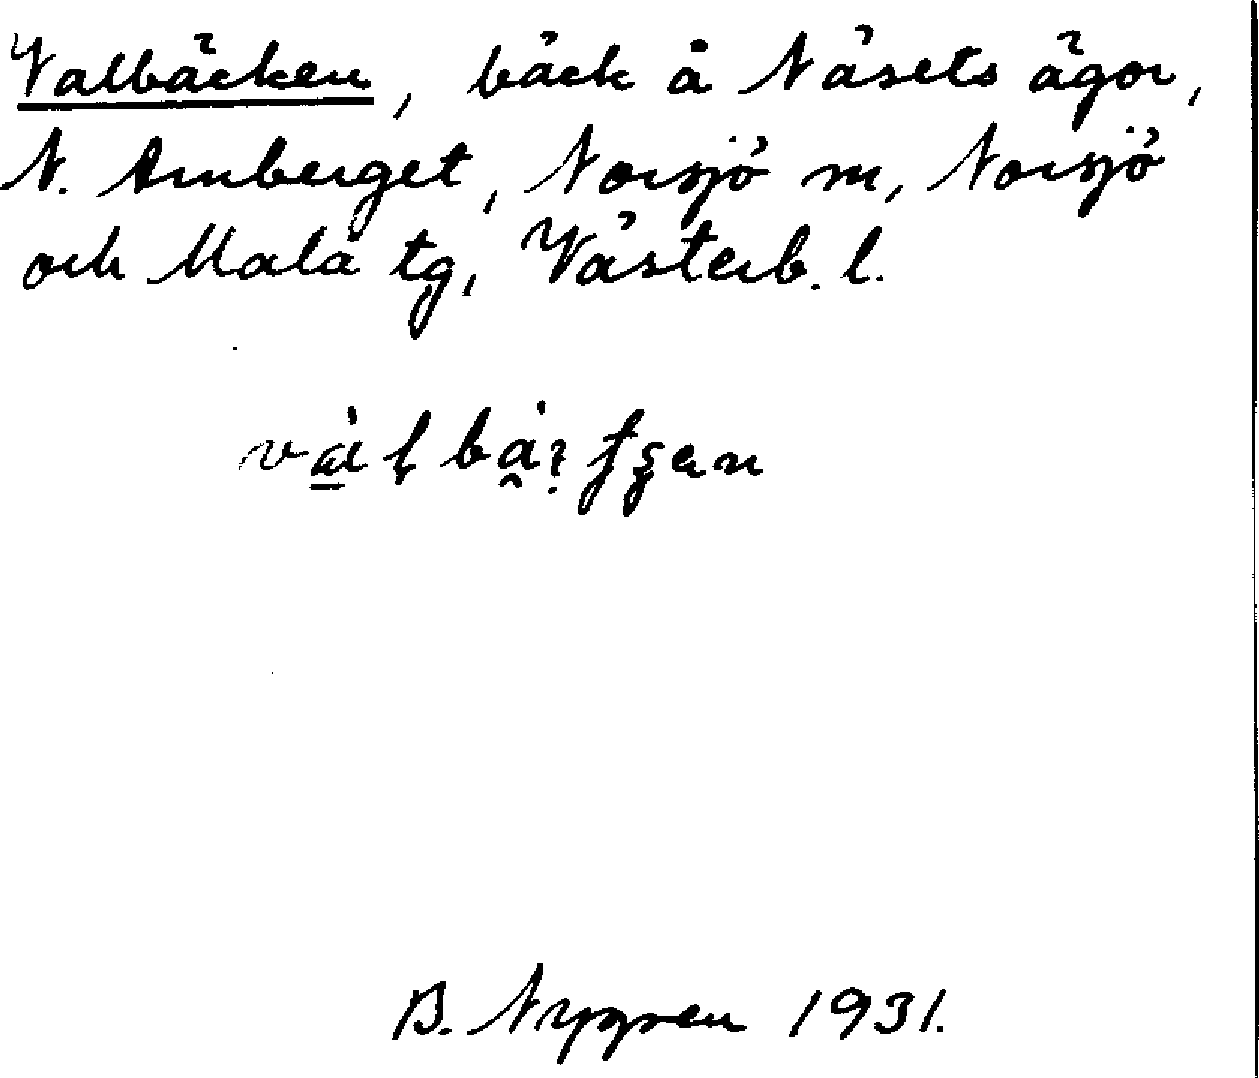 Valbäcken, bäck å Näsets ägor,
N. Armberget, Norsjö sn, Norsjö
och Malå tg, Västerb. l.
B. Nygren 1931.